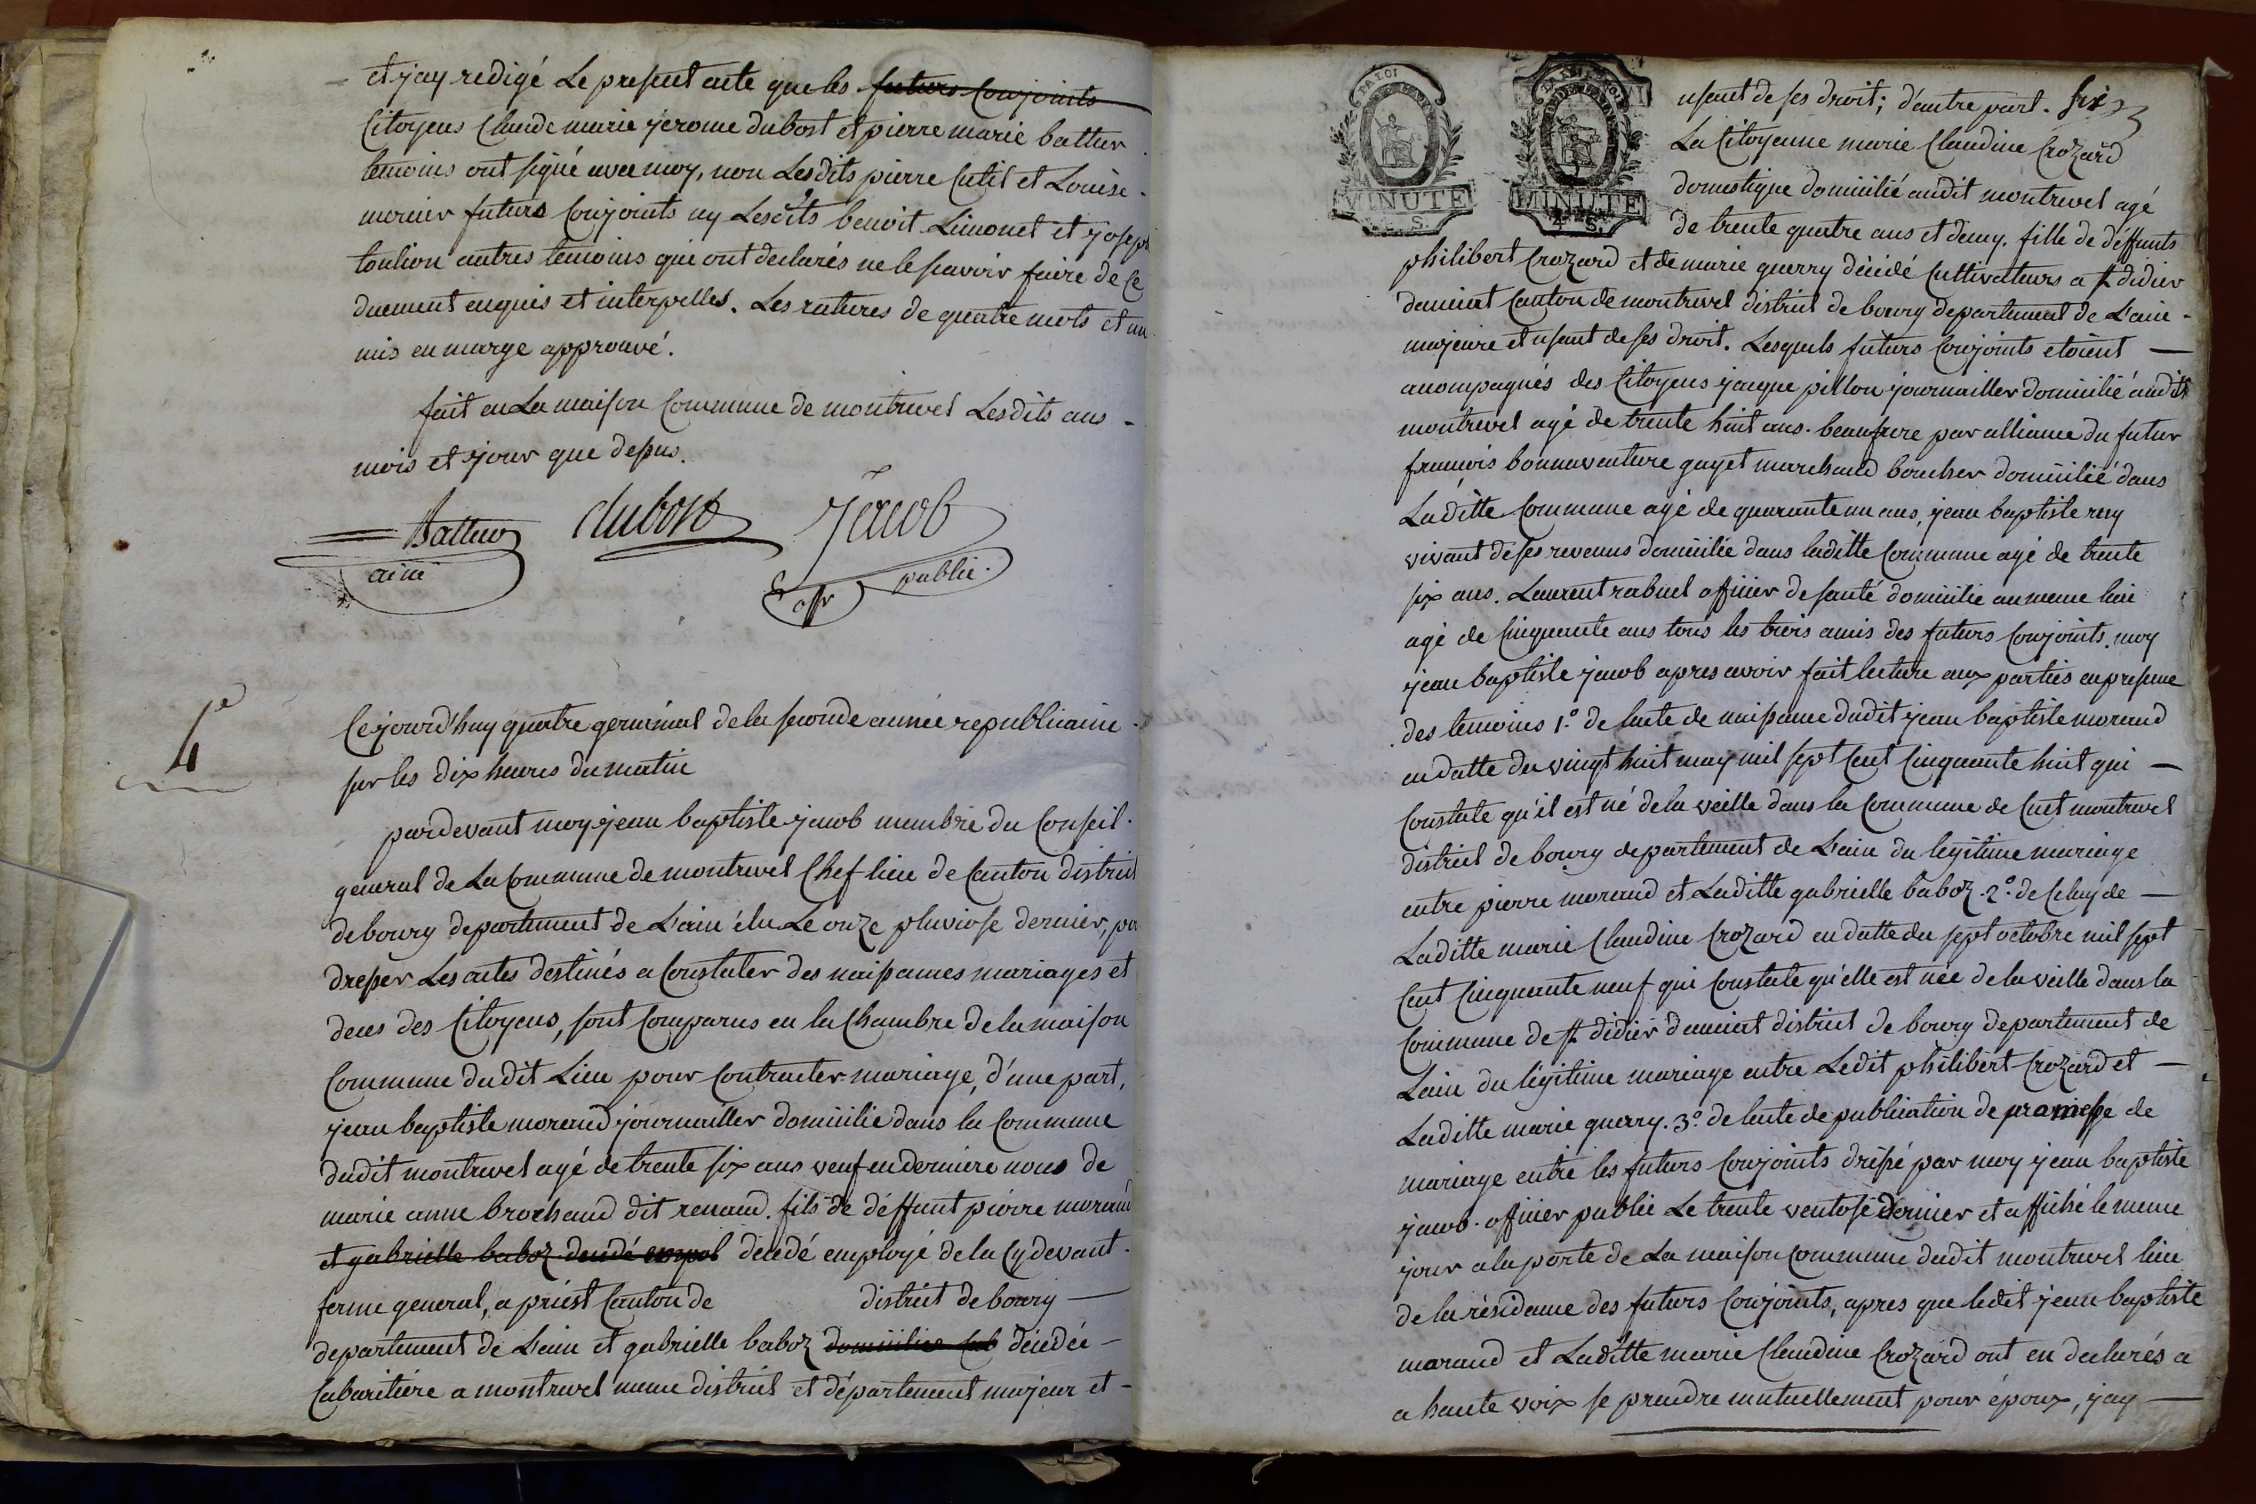 et j'ay redigé Le present acte que les futurs Conjoints
Citoyens Claude marie jerome dubost et pierre marie battur
temoins ont signé avec moy, non Lesdits pierre Cutil et Louise
morier futurs Conjoints ny Lesdits benoit Limonet et joseph
toulion autres temoins qui ont declarés ne le scavoir faire de Ce
duement enquis et interpellés. Les ratures de quatre mots et un
mis en marge approuvé.
fait en La maison Commune de montrevel Lesdits ans
mois et jour que depus.
Batteur dubost Jacob
ainé offr public.
4e
Cejourd'huy quatre germinal de la seconde année republicaine
sur les dix heures du matin
pardevant moy jean baptiste jacob membre du Conseil
general de La Commune de montrevel Chef lieu de Canton district
de bourg departement de L'ain élu Le onze pluviose dernier, po
dresser Les actes destinés a Constater des naissances mariages et
deces des Citoyens, sont Comparus en la Chambre de la maison
Commune dudit Lieu pour Contracter mariage, d'une part,
jean baptiste morand journailler domicilié dans la Commune
dudit montrevel agé de trente six ans veuf en derniere noces de
marie anne brochand dit renaud. fils de deffunt pierre morand
et gabrielle baboz decedé empol decedé employé de la Cydevant
ferme general, a priest Canton de district de bourg
departement de L'ain et gabrielle baboz domiciliée Cab décedée
Cabaritiere a montrevel meme district et département majeur et
DA LOI
MINUTE
S.
MINUTE
S.
usant de ses droit; d'autre part. six
La Citoyenne marie Claudine Crozard
domestique domicilié audit montrevel agé
de trente quatre ans et demy. fille de deffunts
philibert Crozard et de marie querry décédé Cultivateurs a st didier
danciat Canton de montrevel district de bourg departement de L'ain
majeure et usant de ses droit. Lesquels futurs Conjoints etoient
accompagnés des Citoyens jacque pillon journailler domicilié audit
montrevel agé de trente huit ans. beaufrere par alliance du futur
francois bonnaventure gayet marchand boucher domicilié dans
Laditte Commune agé de quarante un ans, jean baptiste rey
vivant de ses revenus domicilié dans laditte Commune agé de trente
six ans. Laurent rabuel officier de santé domicilié au meme lieu
agé de Cinquante ans tous les trois amis des futurs Conjoints. moy
jean baptiste jacob apres avoir fait lecture aux parties en presence
des temoins 1.º de lacte de naissance dudit jean baptiste morand
en datte du vingt huit may mil sept Cent Cinquante huit qui
Constate qu'il est né de la veille dans la Commune de Cuet montrevel
district de bourg departement de L'ain du legitime mariage
entre pierre morand et Laditte gabrielle baboz. 2º. de Celuy de
Laditte marie Claudine Crozard en datte du sept octobre mil sept
Cent Cinquante neuf qui Constate qu'elle est née de la veille dans la
Commune de st didier danciat district de bourg departement de
Lain du légitime mariage entre Ledit philibert Crozard et
Laditte marie querry. 3º. de lacte de publication de promesse de
mariage entre les futurs Conjoints dressé par moy jean baptiste
jacob officier public Le trente ventose dernier et affiché le meme
jour a la porte de La maison Commune dudit montrevel lieu
de la résidance des futurs Conjoints, apres que ledit jean baptiste
marand et Laditte marie Claudine Crozard ont eu declarés a
a haute voix se prendre mutuellement pour époux, j'ay